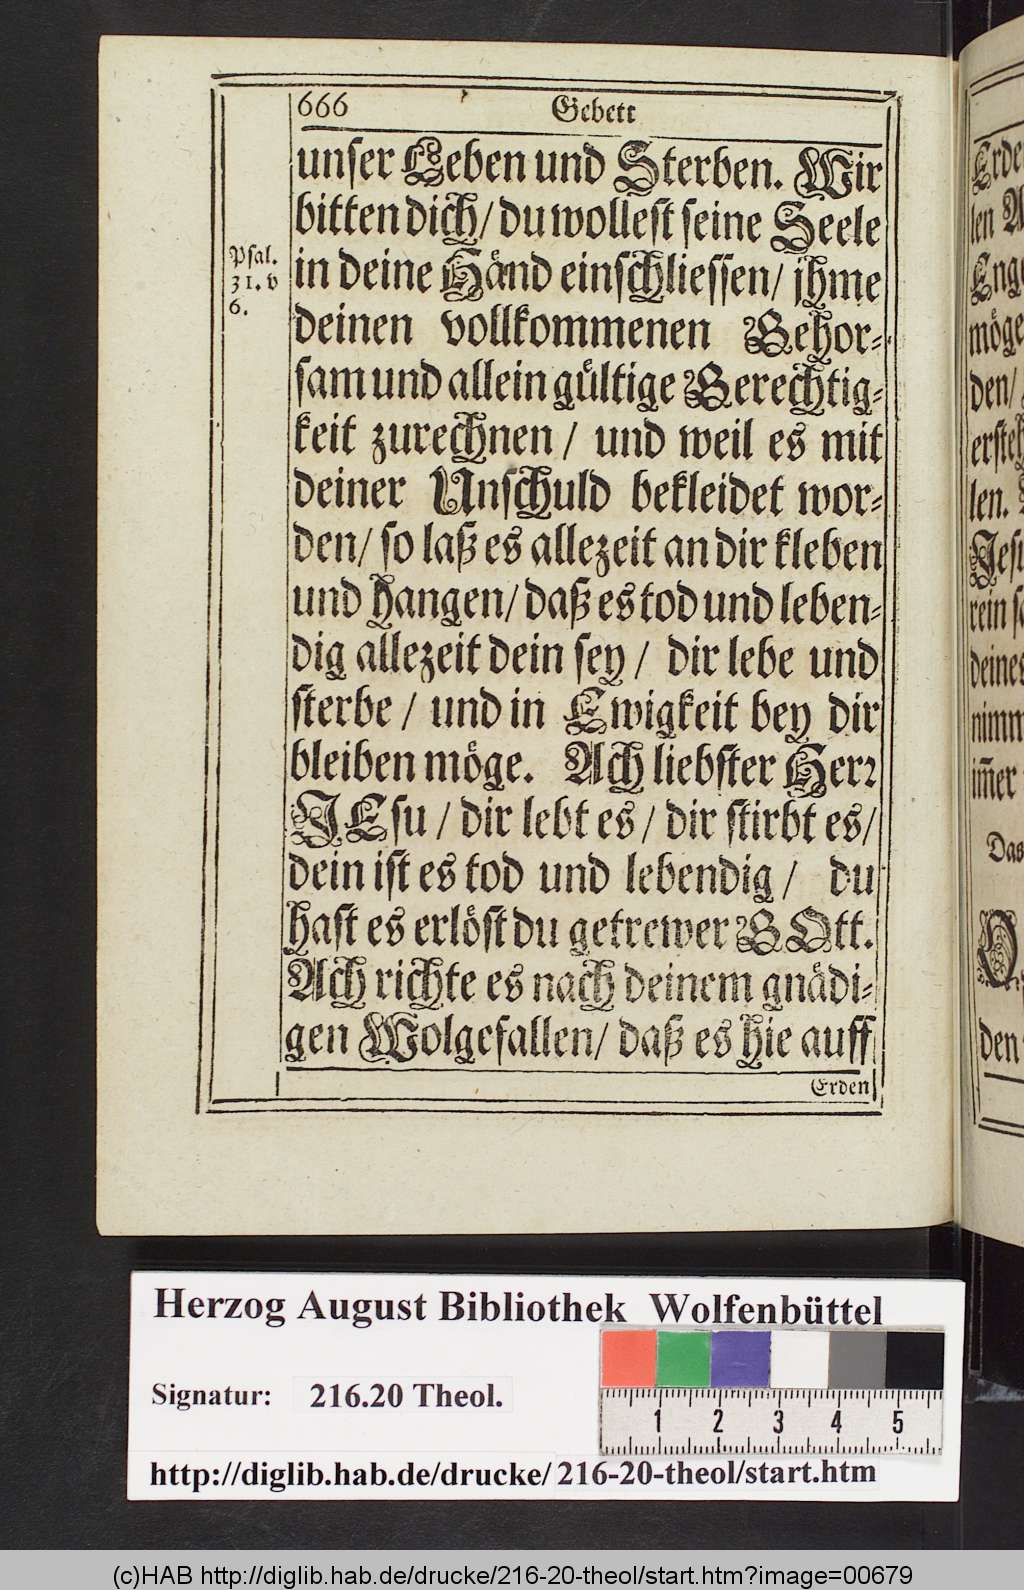 666 Gebett
unser Leben und Sterben. Wir
bitten dich/ du wollest seine Seele
in deine Händ einschliessen/ jhme
deinen vollkommenen Gehor-
sam und allein gültige Gerechtig-
keit zurechnen/ und weil es mit
deiner Unschuld bekleidet wor-
den/ so laß es allezeit an dir kleben
und hangen/ daß es tod und leben-
dig allezeit dein sey/ dir lebe und
sterbe/ und in Ewigkeit bey dir
bleiben möge. Ach liebster Herr
JEsu/ dir lebt es/ dir stirbt es/
dein ist es tod und lebendig/ du
hast es erlöst du getrewer GOtt.
Ach richte es nach deinem gnädi-
gen Wolgefallen/ daß es hie auff
Erden
Psal.
31. v
6.
Erde
len A
Enge
möge
den/
ersteh
len.
Jesu
rein
deines
nimm
im̃er
Das
den
Herzog August Bibliothek Wolfenbüttel
Signatur: 216.20 Theol.
1 2 3 4 5
http://diglib.hab.de/drucke/216-20-theol/start.htm
(c)HAB http://diglib.hab.de/drucke/216-20-theol/start.htm?image=00679